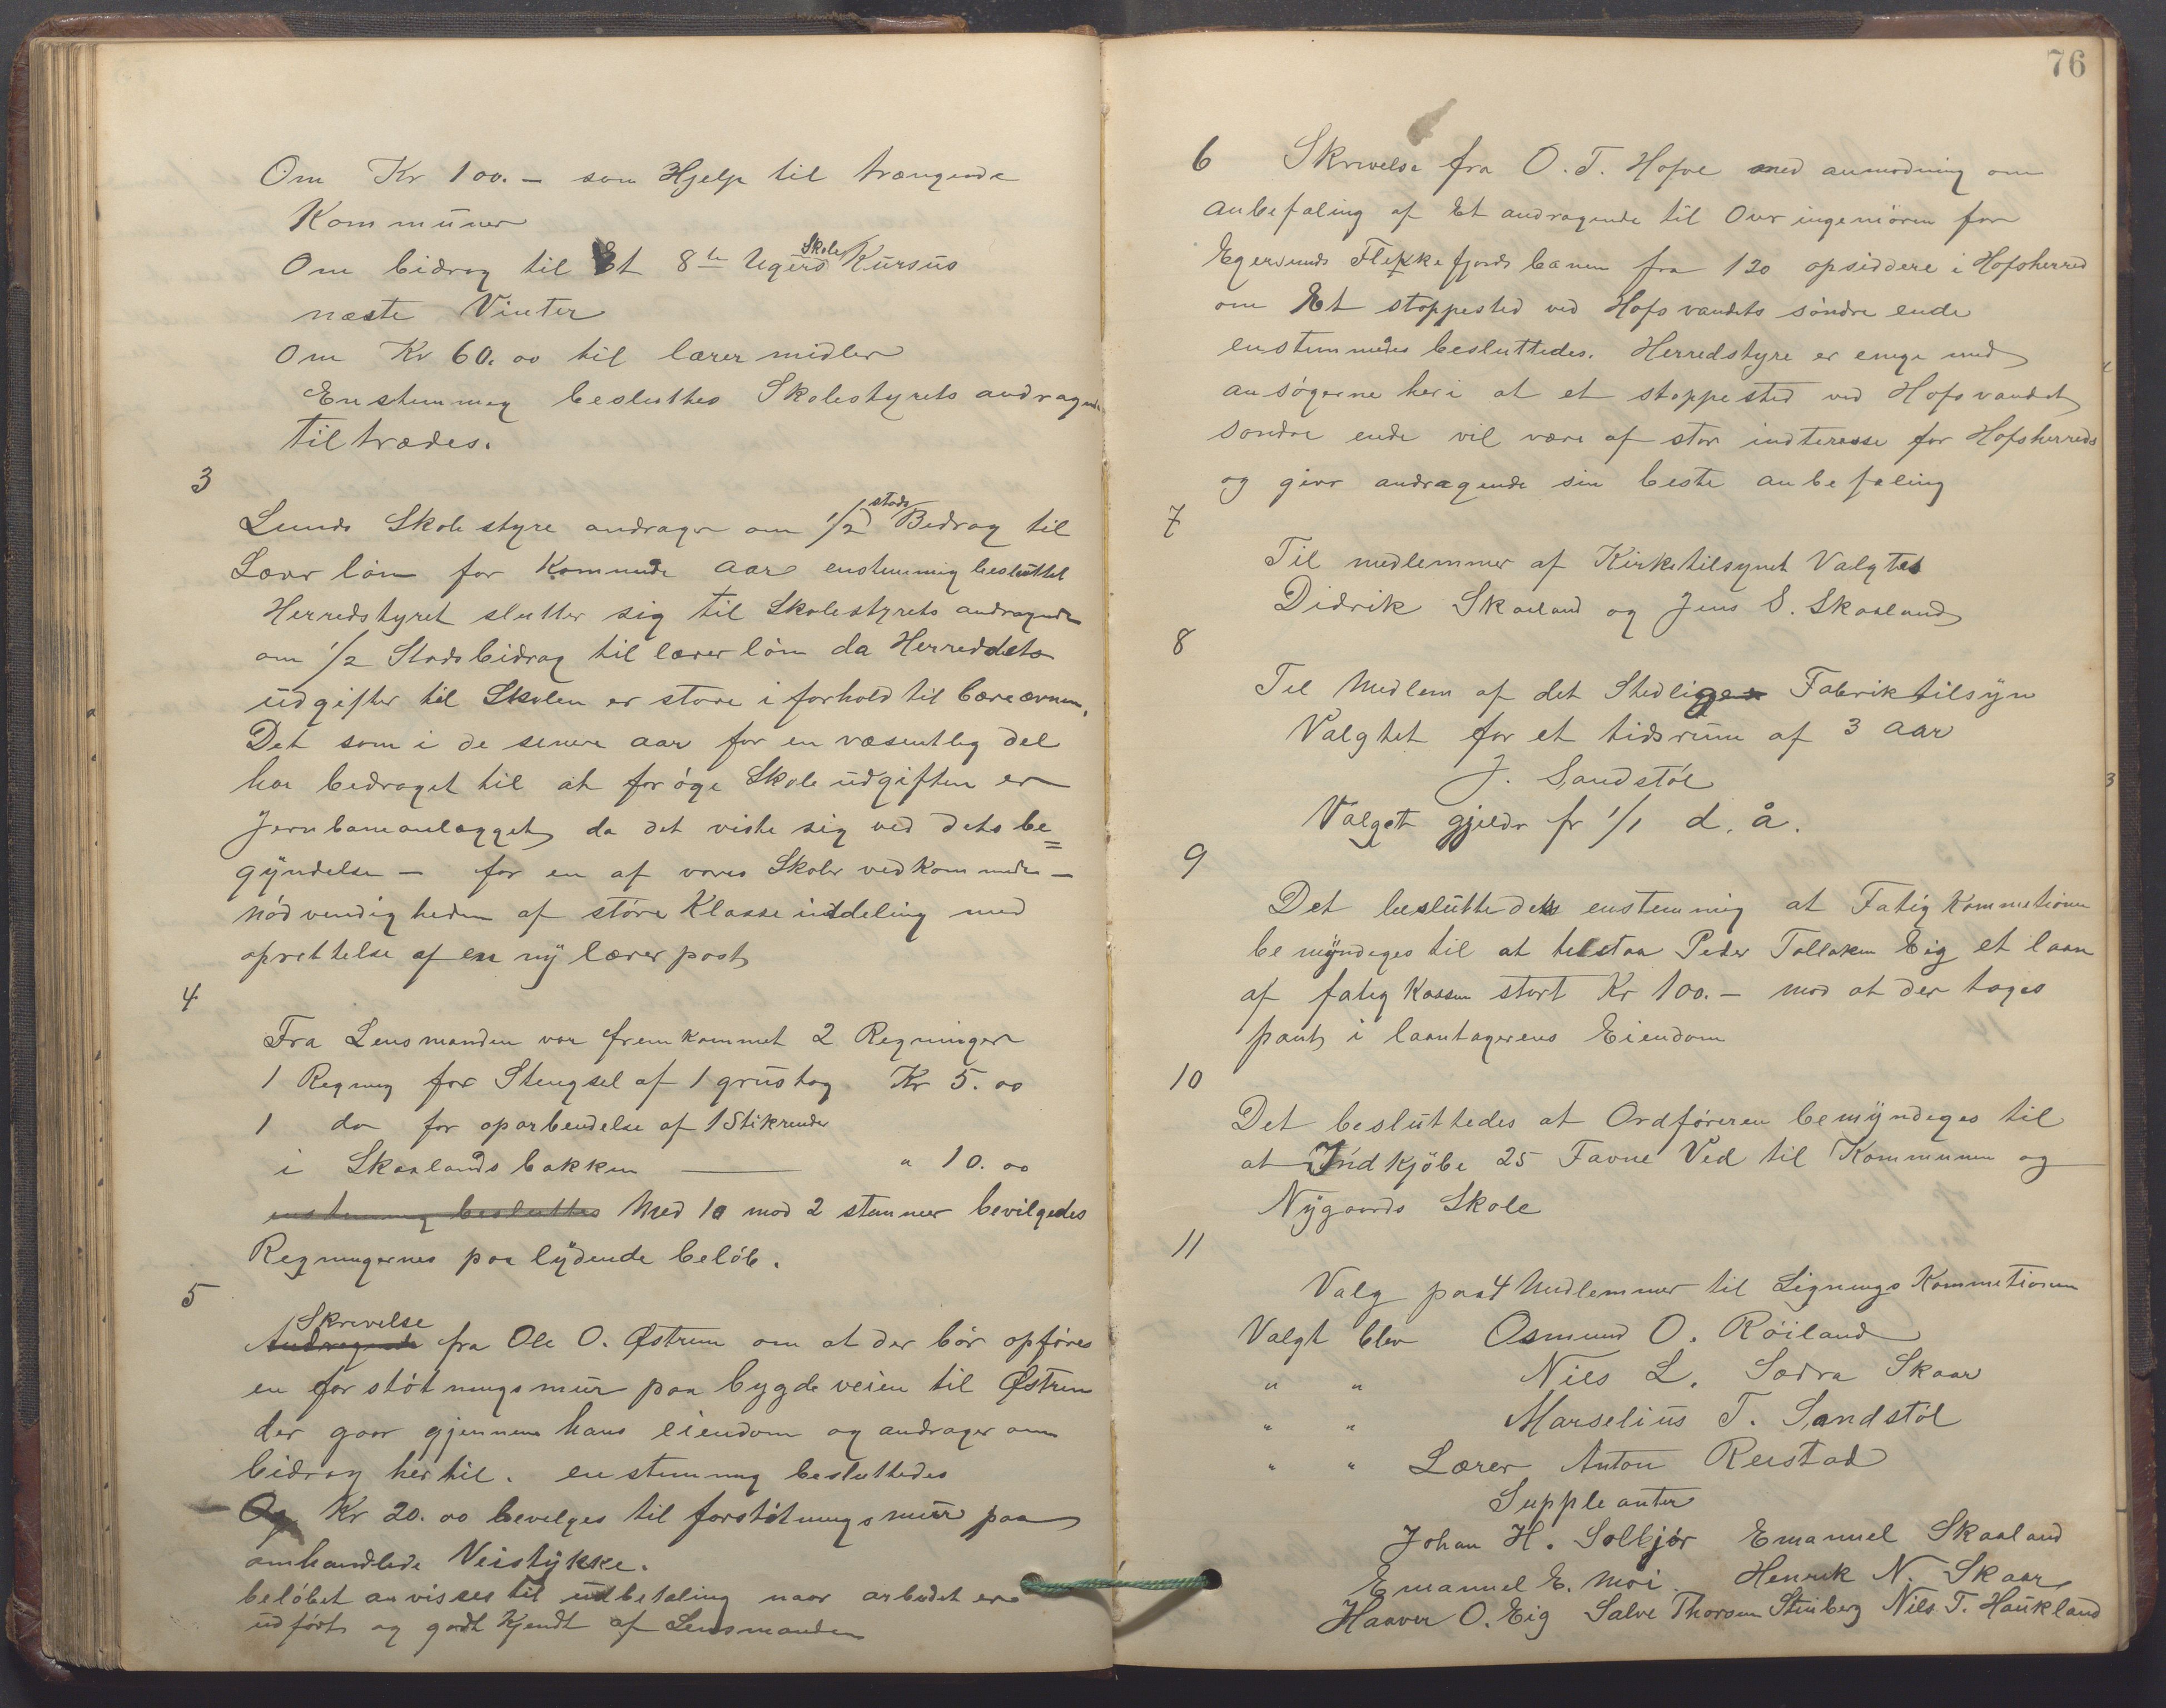 Om Kr 100.– som Hjelp til trængende
Kommuner
Om bidrag til Et 8te Ugers Skole Kursus
næste Vinter
Om Kr 60.00 til lærer midler
Enstemmig besluttes Skolestyrets andragende
tiltrædes.
3
Lunds Skole styre andrager om 1/2 stads Bedrag til
Lærer løn for Kommende aar enstemmig besluttet
Herredstyret slutter sig til Skolestyrets andragende
om 1/2 Stadsbidrag til lærer løn da Herreddets
udgifter til Skolen er store i forhold til bæreævnen.
Det som i de senere aar for en væsentlig del
har bedraget til at forøge Skole udgiften er
Jernbaneanlægget da det viste sig ved dets be=
gyndelse – for en af vores Skoler vedkommende –
nødvendigheden af større Klasse inddeling med
oprettelse af en ny lærer post
4
Fra Lensmanden var fremkommet 2 Regninger
1 Regning for Stengsel af 1 grustag Kr 5.00
1 do for oparbeidelse af 1 Stikrender
i Skaalands bakken — " 10.00
enstemmig besluttes Med 10 mod 2 stemmer bevilgedes
Regningernes paa lydende beløb.
5
Skrivelse
Andragende fra Ole O. Østrem om at der bør opføres
en forstøtningsmur paa bygdeveien til Østrem
der gaar gjennem hans eiendom og andrager om
bidrag hertil. enstemmig besluttedes
Og Kr 20.00 bevilges til forstøtningsmur paa
omhandlede Veistykke.
beløbet anvisses til udbetaling naar arbeidet er
udført og godt kjendt af Lensmanden
76
6 Skrivelse fra O. T. Hofve med anmodning om
anbefaling af Et andragende til Overingeniøren for
Egersunds Flekkefjords banen fra 120 opsiddere i Hofsherred
om Et stoppested ved Hofsvandets søndre ende
enstemmedes besluttedes. Herredstyre er enige med
ansøgerne heri at et stoppested ved Hofsvandet
søndre ende vil være af stor indteresse for Hofsherred
og giver andragende sin beste anbefaling
7
Til medlemmer af Kirketilsynet Valgtes
Didrik Skaaland og Jens S. Skaaland
8
Til Medlem af det Stedlige Fabriktilsyn
Valgtet for et tidsrum af 3 aar
J. Sandstøl
Valget gjelder fr 1/1 d. å.
9
Det besluttedets enstemmig at Fatig Kommetionen
bemyndeges til at tilstaa Peder Tollaksen Eig et laan
af fatig Kassen stort Kr 100.– mod at der tages
pant i laantagerens Eiendom
10
Det besluttedes at Ordføreren bemyndeges til
at Indkjøbe 25 Favne Ved til Kommunen og
Nygaards Skole
11
Valg paa 4 Medlemmer til Lignings Kommetionen
Valgt blev Osmund O. Røiland
" " Niels L. Sødra Skaar
" " Marselius T. Sandstøl
" " Lærer Anton Reestad
Suppleanter
Johan H. Solbjør Emanuel Skaaland
Emanuel E. Moi. Henrik N. Skaar
Haaver O. Eig Salve Thorsen Stenberg Nils T. Haukland